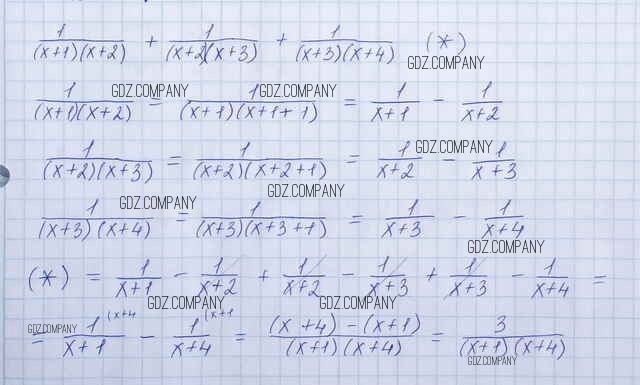 1/((x+1)(x+2)) + 1/((x+2)(x+3)) + 1/((x+3)(x+4)) (*)
GDZ.COMPANY
1/((x+1)(x+2)) = 1/((x+1)(x+1+1)) = 1/(x+1) - 1/(x+2)
GDZ.COMPANY GDZ.COMPANY
1/((x+2)(x+3)) = 1/((x+2)(x+2+1)) = 1/(x+2) - 1/(x+3)
GDZ.COMPANY
GDZ.COMPANY
1/((x+3)(x+4)) = 1/((x+3)(x+3+1)) = 1/(x+3) - 1/(x+4)
GDZ.COMPANY
GDZ.COMPANY
(*) = 1/(x+1) - 1/(x+2) + 1/(x+2) - 1/(x+3) + 1/(x+3) - 1/(x+4) =
GDZ.COMPANY GDZ.COMPANY
= 1/(x+1) (x+4 - 1/(x+4) (x+1 = ((x+4) - (x+1))/((x+1)(x+4)) = 3/((x+1)(x+4))
GDZ.COMPANY
GDZ.COMPANY